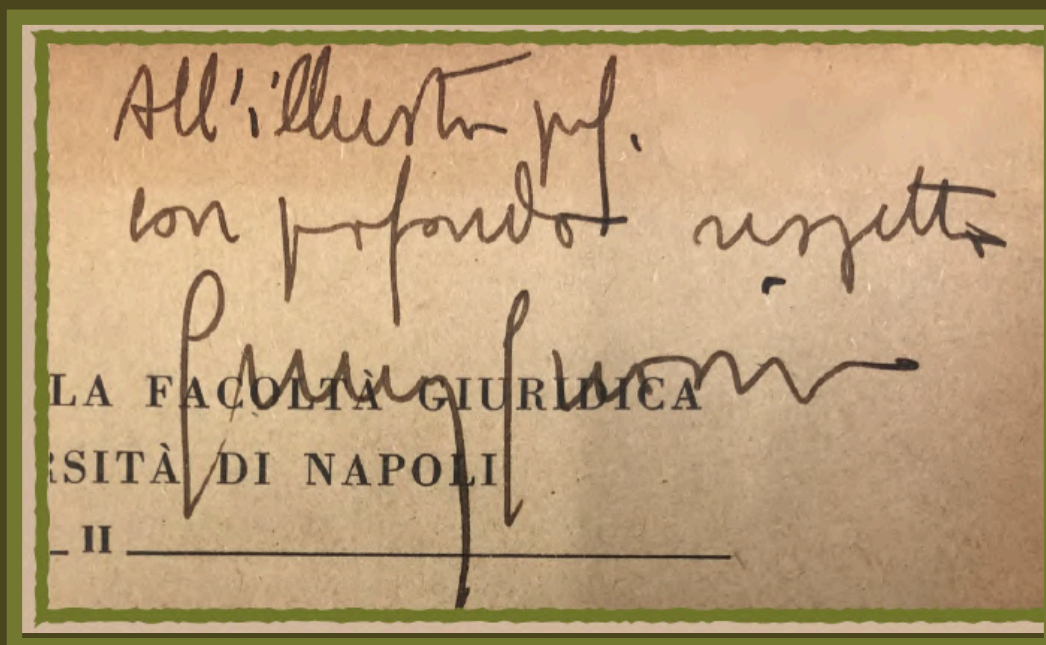 All'illustre prof.
con profondo rispetto
LA FACOLTÀ GIURIDICA
RSITÀ DI NAPOLI
II